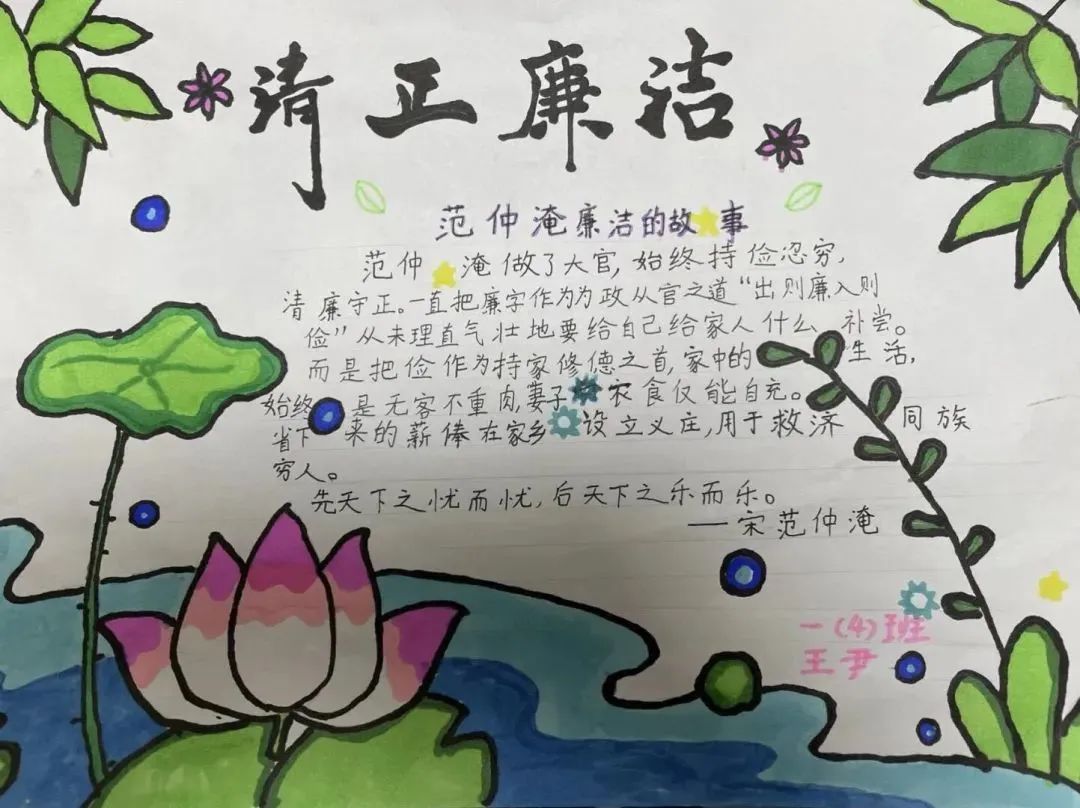 清正廉洁
范仲淹廉洁的故事
范仲淹做了大官,始终持俭忍穷,
清廉守正。一直把廉字作为为政从官之道“出则廉入则
俭”从未理直气壮地要给自己给家人什么补尝。
而是把俭作为持家修德之首,家中的生活,
始终是无客不重肉,妻子衣食仅能自充。
省下来的薪俸在家乡设立义庄,用于救济同族
穷人。
先天下之忧而忧,后天下之乐而乐。
——宋范仲淹
一(4)班
王尹